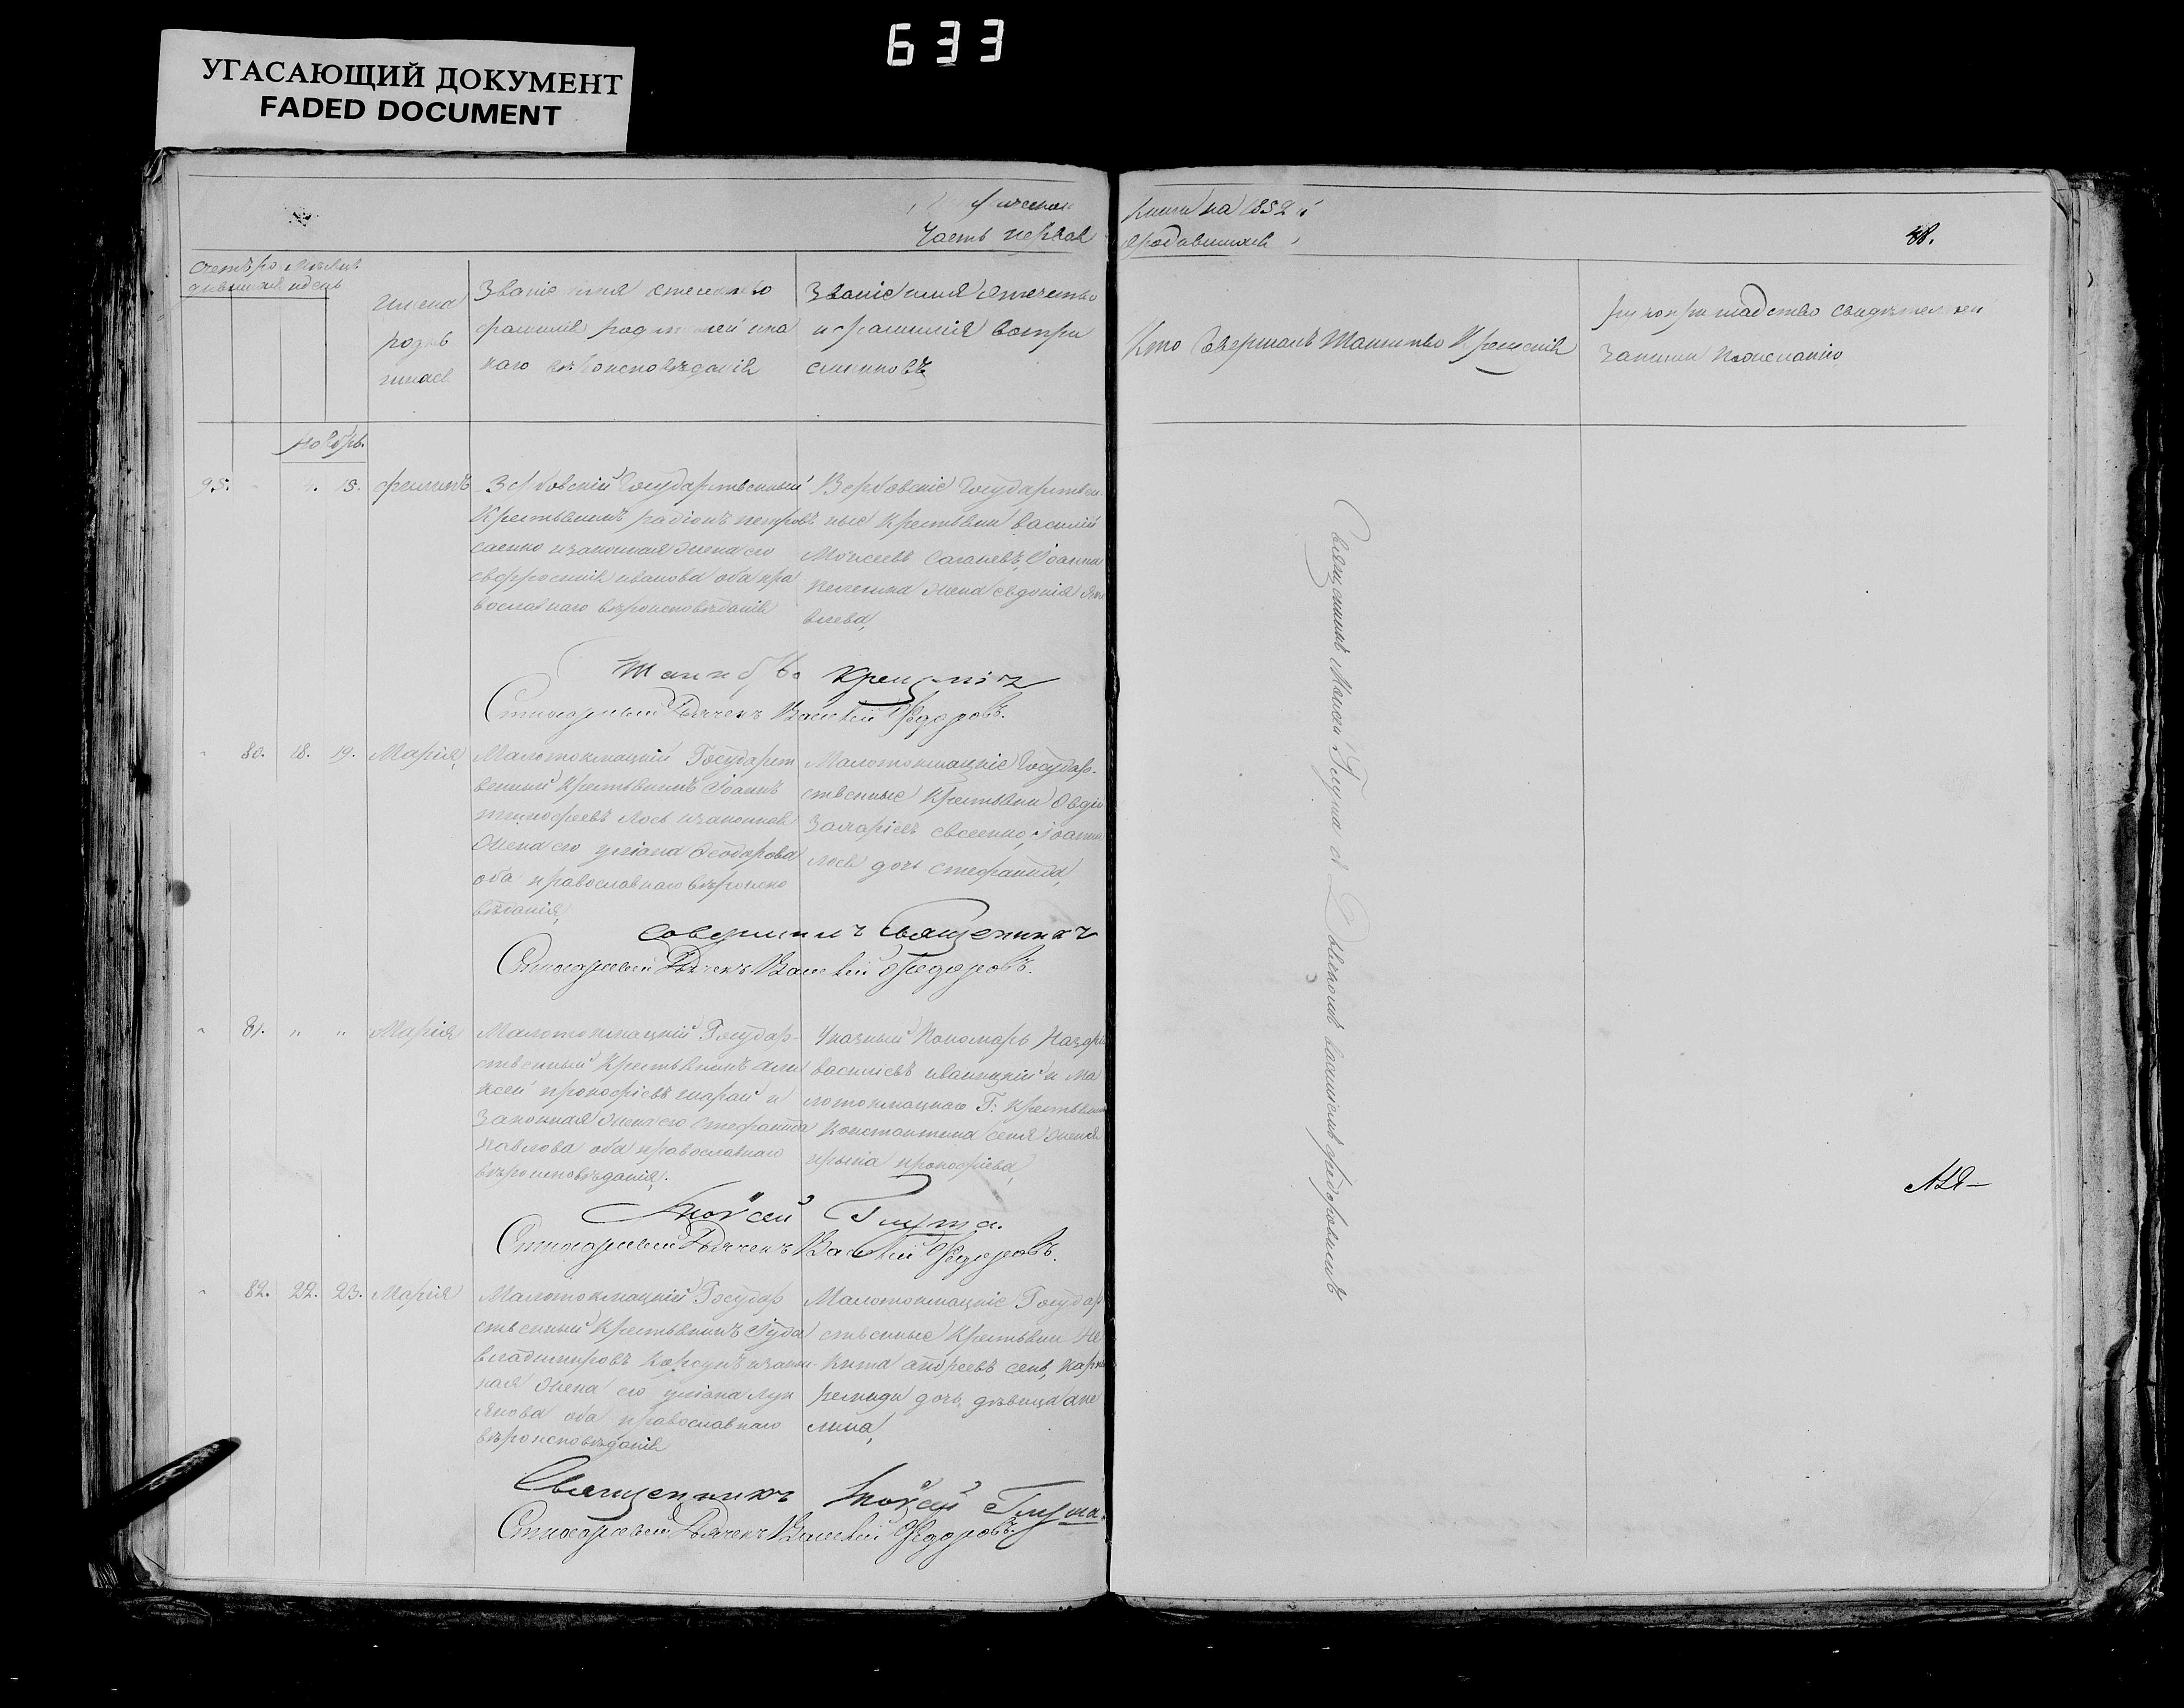 633
УГАСАЮЩИЙ ДОКУМЕНТ
FADED DOCUMENT
Часть первая
Книги на 1852 й
о родившихся
48.
Счетъ ро
дившихся
Мѣсяцъ
и день
Имена
родив
шихся
Званіе имя отечество
фамилія родителей и ка
каго вѣроисповѣданія
Званіе имя отечество
и фамилія воспри
емниковъ
Кто Совершалъ Таинство Крещенія
рукоприкладство свидѣтелей
записи по желанію
ноябрь.
95.
15.
Государственный
Крестьянинъ радіонъ петровъ
саенко и законная жена его
евфросинія иванова оба пра
вославнаго вѣроисповѣданія
Вербовскіе Государствен
ные Крестьяни василій
Моисеевъ Іоанна
жена евдокія
Таинство крещенія
Стихарный Дьячекъ Василій Федоровъ.
80. 18. 19. Марія,
Малотокмацкій Государст
венный Крестьянинъ Іоаннъ
тимофеевъ лось и законная
жена его уліана Феодорова
оба православнаго вѣроиспо
вѣданія,
Малотокмацкіе Государ
ственные Крестьяни Овдій
Захаріевъ евсеенко, Іоанна
лося дочь стефанида,
совершилъ Священникъ
Стихарный Дьячекъ Василій Федоровъ.
81. " " Марія
Малотокмацкій Государ-
ственный Крестьянинъ
прокофіевъ шарай и
Законная жена его Стефанида
павлова оба православнаго
вѣроисповѣданія.
Указный Пономарь Назарій
васильевъ иваницкій и Ма
лотокмацкаго Г: Крестьянина
Константина сеня жена
ирина прокофіева,
Моисей Глуша.
Стихарный Дьячекъ Василій Федоровъ.
82. 22. 23. Марія
Малотокмацкій Государ
ственный Крестьянинъ Іуда
владимировъ Корсунъ и закон-
ная жена его уліана Лук
янова оба православнаго
вѣроисповѣданія
Малотокмацкіе Государ
ственные Крестьяни Ни
кита андреевъ сень,
дочь дѣвица аке
лина,
Священникъ Моисей Глуша.
Стихарный Дьячекъ Василій Федоровъ.
Священникъ Моисей Глуша съ Дьячкомъ василіемъ федоровымъ